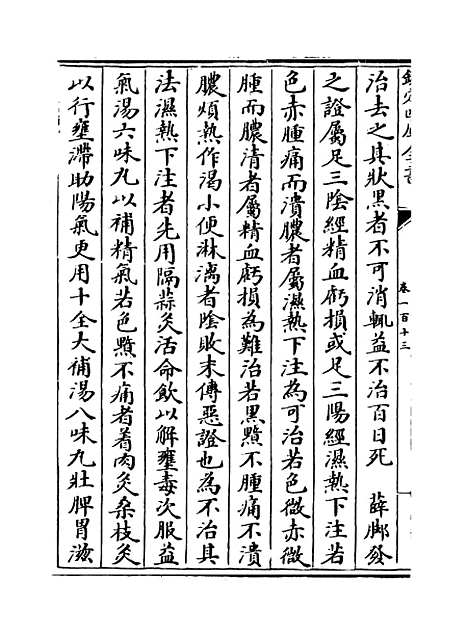 欽定四庫全書
卷一百十三
治去之其狀黑者不可消輒益不治百日死　薛脚發
之證屬足三陰經精血虧損或足三陽經濕熱下注若
色赤腫痛而潰膿者屬濕熱下注為可治若色微赤微
腫而膿清者屬精血虧損為難治若黒黯不腫痛不潰
膿煩熱作渴小便淋漓者陰敗末傳惡證也為不治其
法濕熱下注者先用隔蒜灸活命飲以解壅毒次服益
氣湯六味丸以補精氣若色黯不痛者着肉灸桑枝灸
以行壅滯助陽氣更用十全大補湯八味丸壯脾胃滋